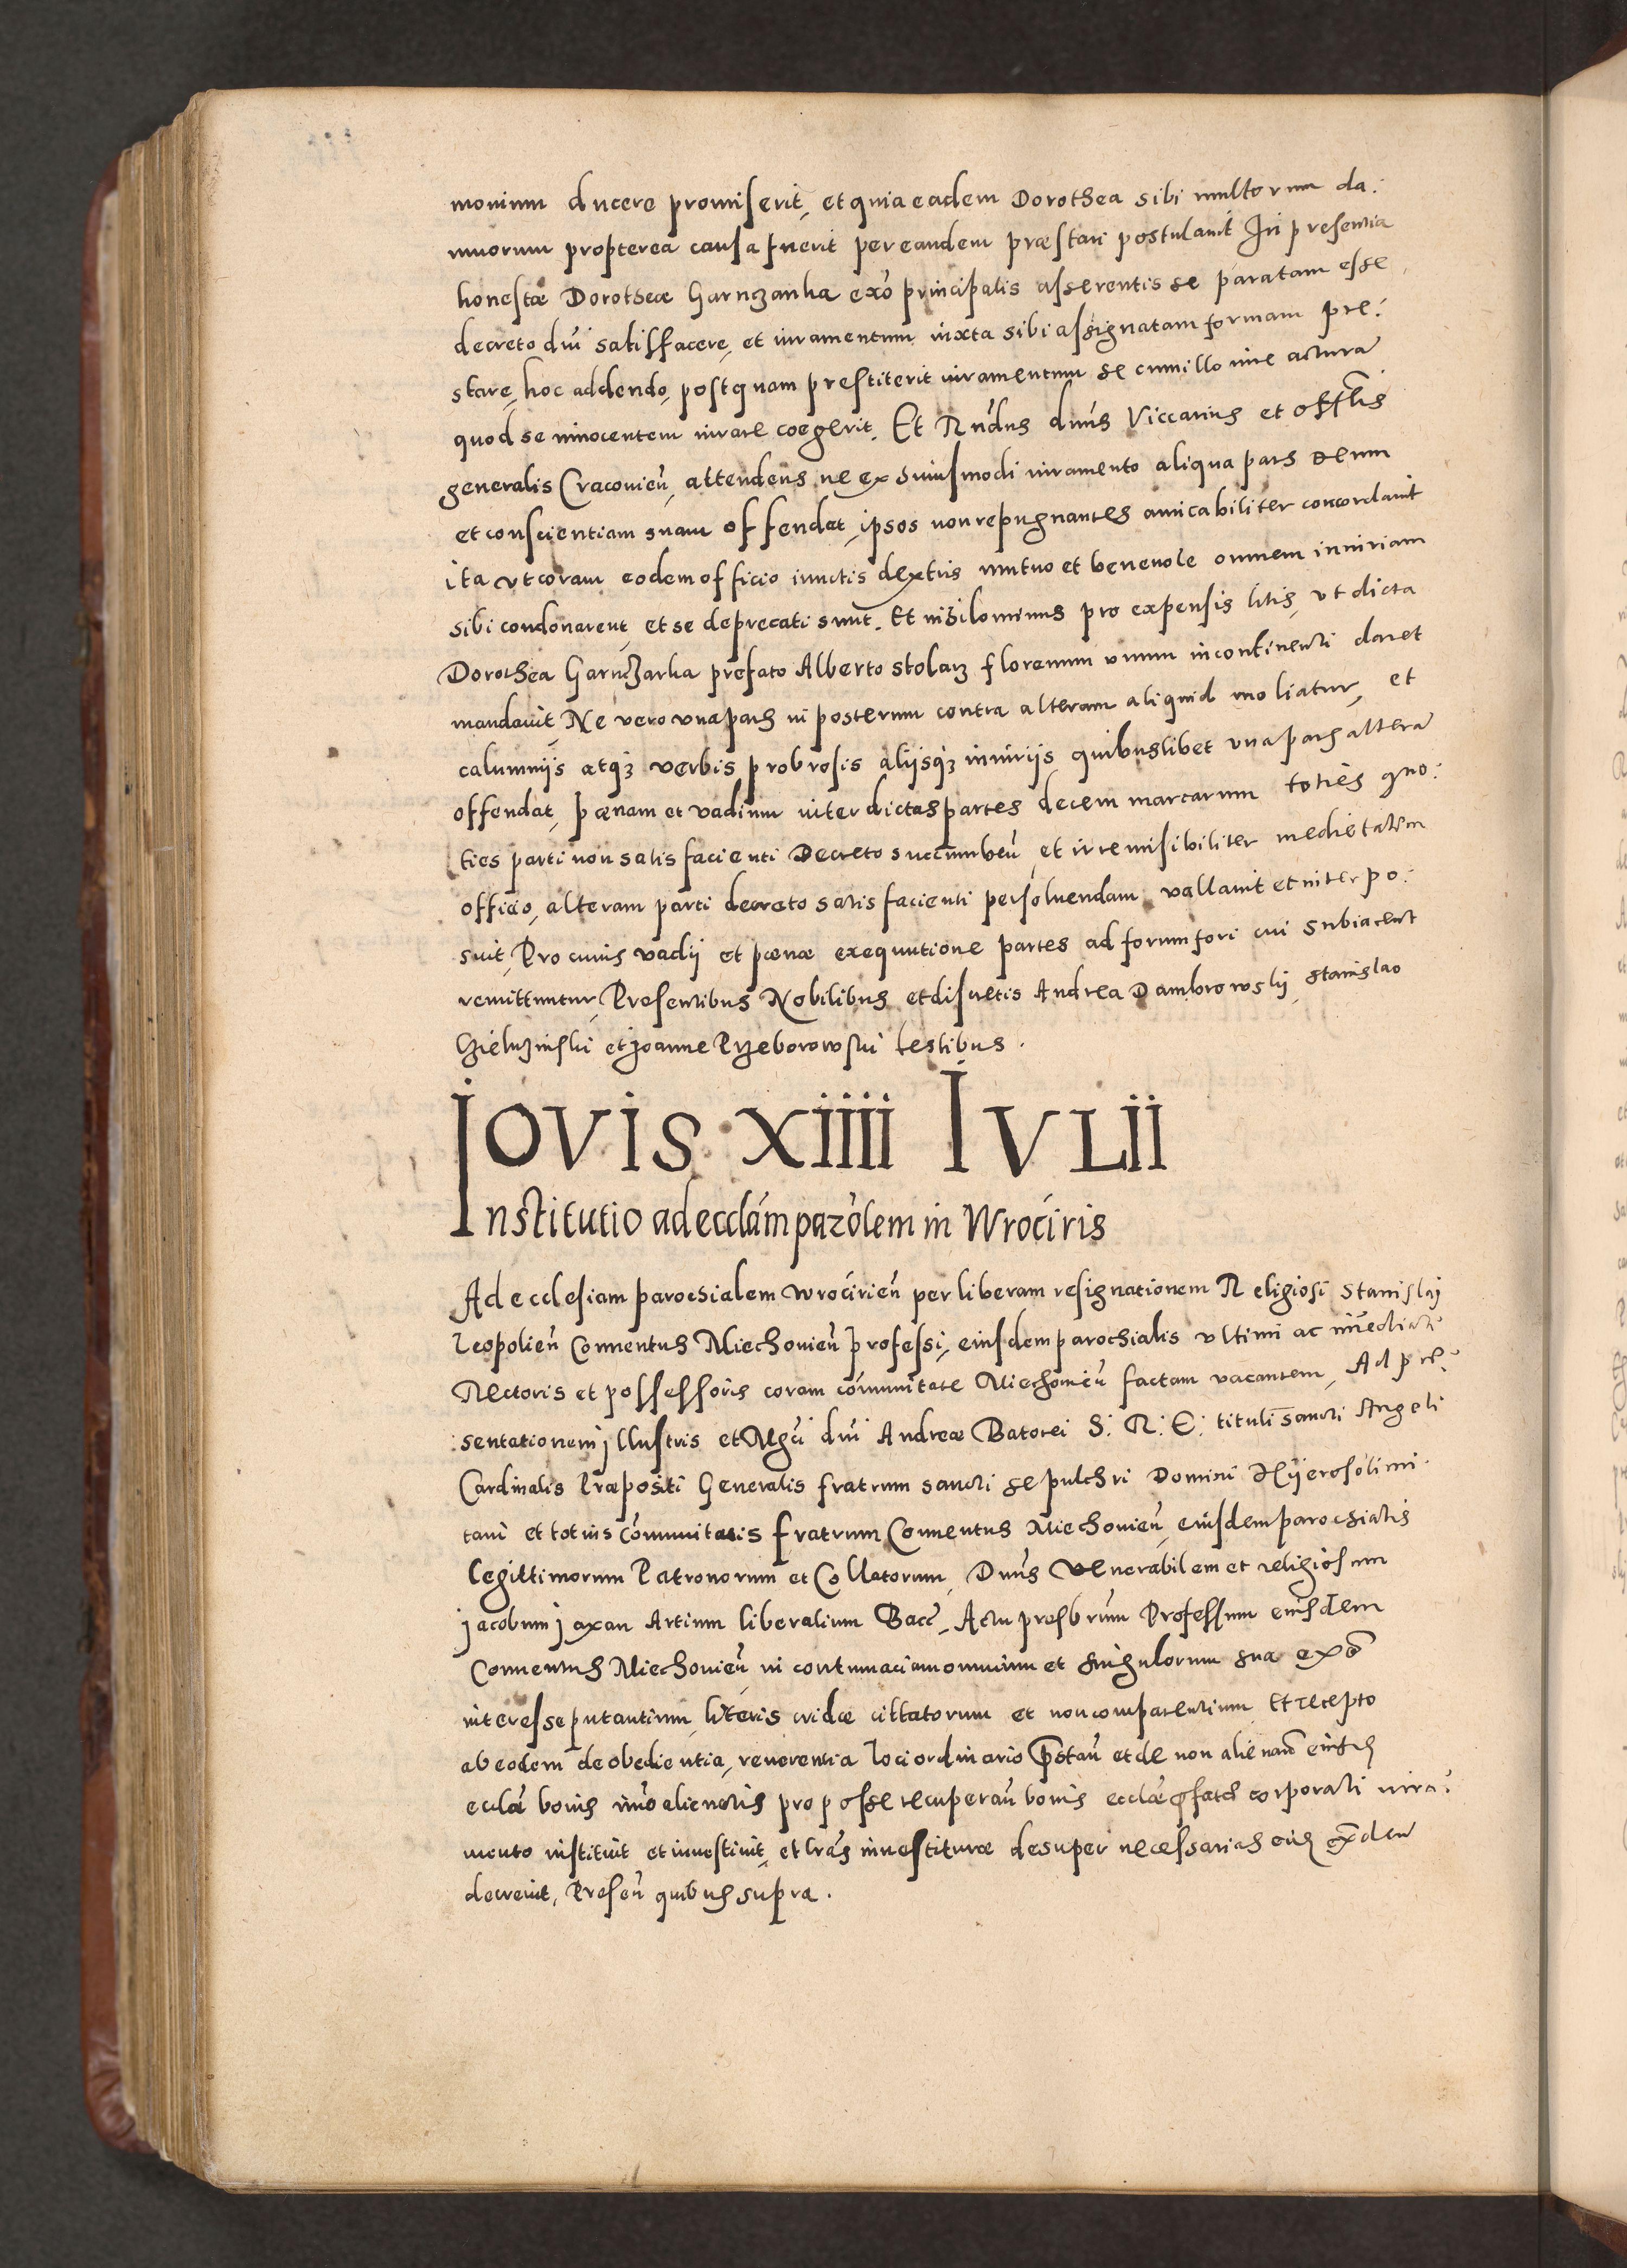 monium ducere promiserit, et quia eadem Dorothea sibi multorum da:
mnorum propterea causa fuerit per eandem præstari postulauit In presentia
honestæ Dorotheæ Garnczarka exo principalis asserentis se paratam esse,
decreto dni satisfacere, et iuramentum iuxta sibi assignatam formam pre:
stare, hoc addendo, postquam prestiterit iuramentum se cum illo iure actura
quod se innocentem iurare coegerit. Et Rndus dnus Viccarius et Offlis
generalis Cracouien, attendens ne ex huiusmodi iuramento aliqua pars Deum
et conscientiam suam offendat, ipsos non repugnantes amicabiliter concordauit
ita vt coram eodem officio iunctis dextris mutuo et beneuole omnem iniuriam
sibi condonarent, et se deprecati sunt. Et nihilominus pro expensis litis, vt dicta
Dorothea Garnczarka prefato Alberto stolarz florenum vnum incontinenti daret
mandauit, Ne vero vna pars in posterum contra alteram aliquid moliatur, et
calumnijs atqz verbis probrosis alijsqz iniurijs quibuslibet vna pars altera
offendat, pænam et vadium inter dictas partes decem marcarum toties quo:
ties parti non satisfacienti Decreto succumben, et irremisibiliter medietatem
officio, alteram parti decreto satisfacienti persoluendam vallauit et interpo:
suit, Pro cuius vadij et pænæ exequutione partes ad forum fori cui subiacent
remittuntur, Presentibus Nobilibus et discretis Andrea Dambrowskj, stanislao
et Joanne Przeborowski testibus.
Jovis xiiii Ivlii
Institutio ad ecclam parolem in Wrociris
Ad ecclesiam parochialem wrocirien per liberam resignationem Religiosi Stanislaj
leopolien Conuentus Miechouien professi, eiusdem parochialis vltimi ac immediati
Rectoris et possessoris coram comunitate Miechouien factam vacantem, Ad pre:
sentationem jllustris et Mgci dni Andreæ Batorei S: R: E: tituli sancti Angeli
Cardinalis Præpositi Generalis fratrum sancti sepulchri Domini Hyerosolimi:
tani et totius comunitatis fratrum Conuentus Miechouien, eiusdem parochialis
legittimorum Patronorum et Collatorum, Dnus venerabilem et religiosum
jacobum jaxan Artium liberalium Bacc, Actu presbrum Professum eiusdem
Conuentus Miechouien in contumaciam omnium et singulorum sua exo
interesse putantium, literis cridæ cittatorum et non comparentium, Et recepto
ab eodem de obedientia, reuerentia loci ordinario pstan et de non alienan
ecclæ bonis imo alienatis pro posse recuperan bonis ecclæ corporali iura:
mento instituit et inuestiuit, et lras inuestituræ desuper necessarias
decreuit, Presen quibus supra.